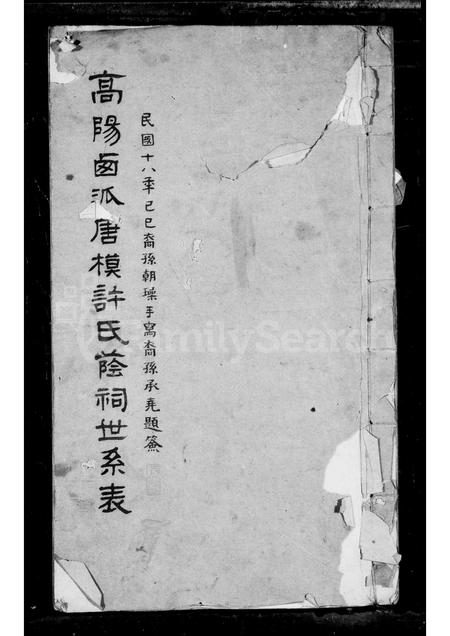 民國十八秊己巳裔孫朝手寫裔孫承堯題簽
高陽卥派唐模許氏蔭祠世系表
FamilySearch